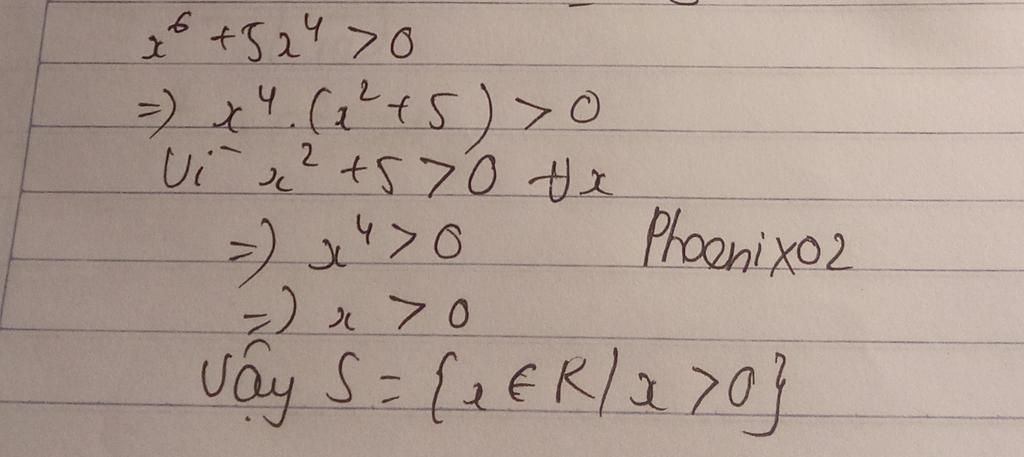 x⁶ + 5x⁴ > 0
=) x⁴.(x² + 5) > 0
Vì x² + 5 > 0 ∀x
=) x⁴ > 0
Phoenix02
=) x > 0
Vậy S = {x ∈ R/x > 0}